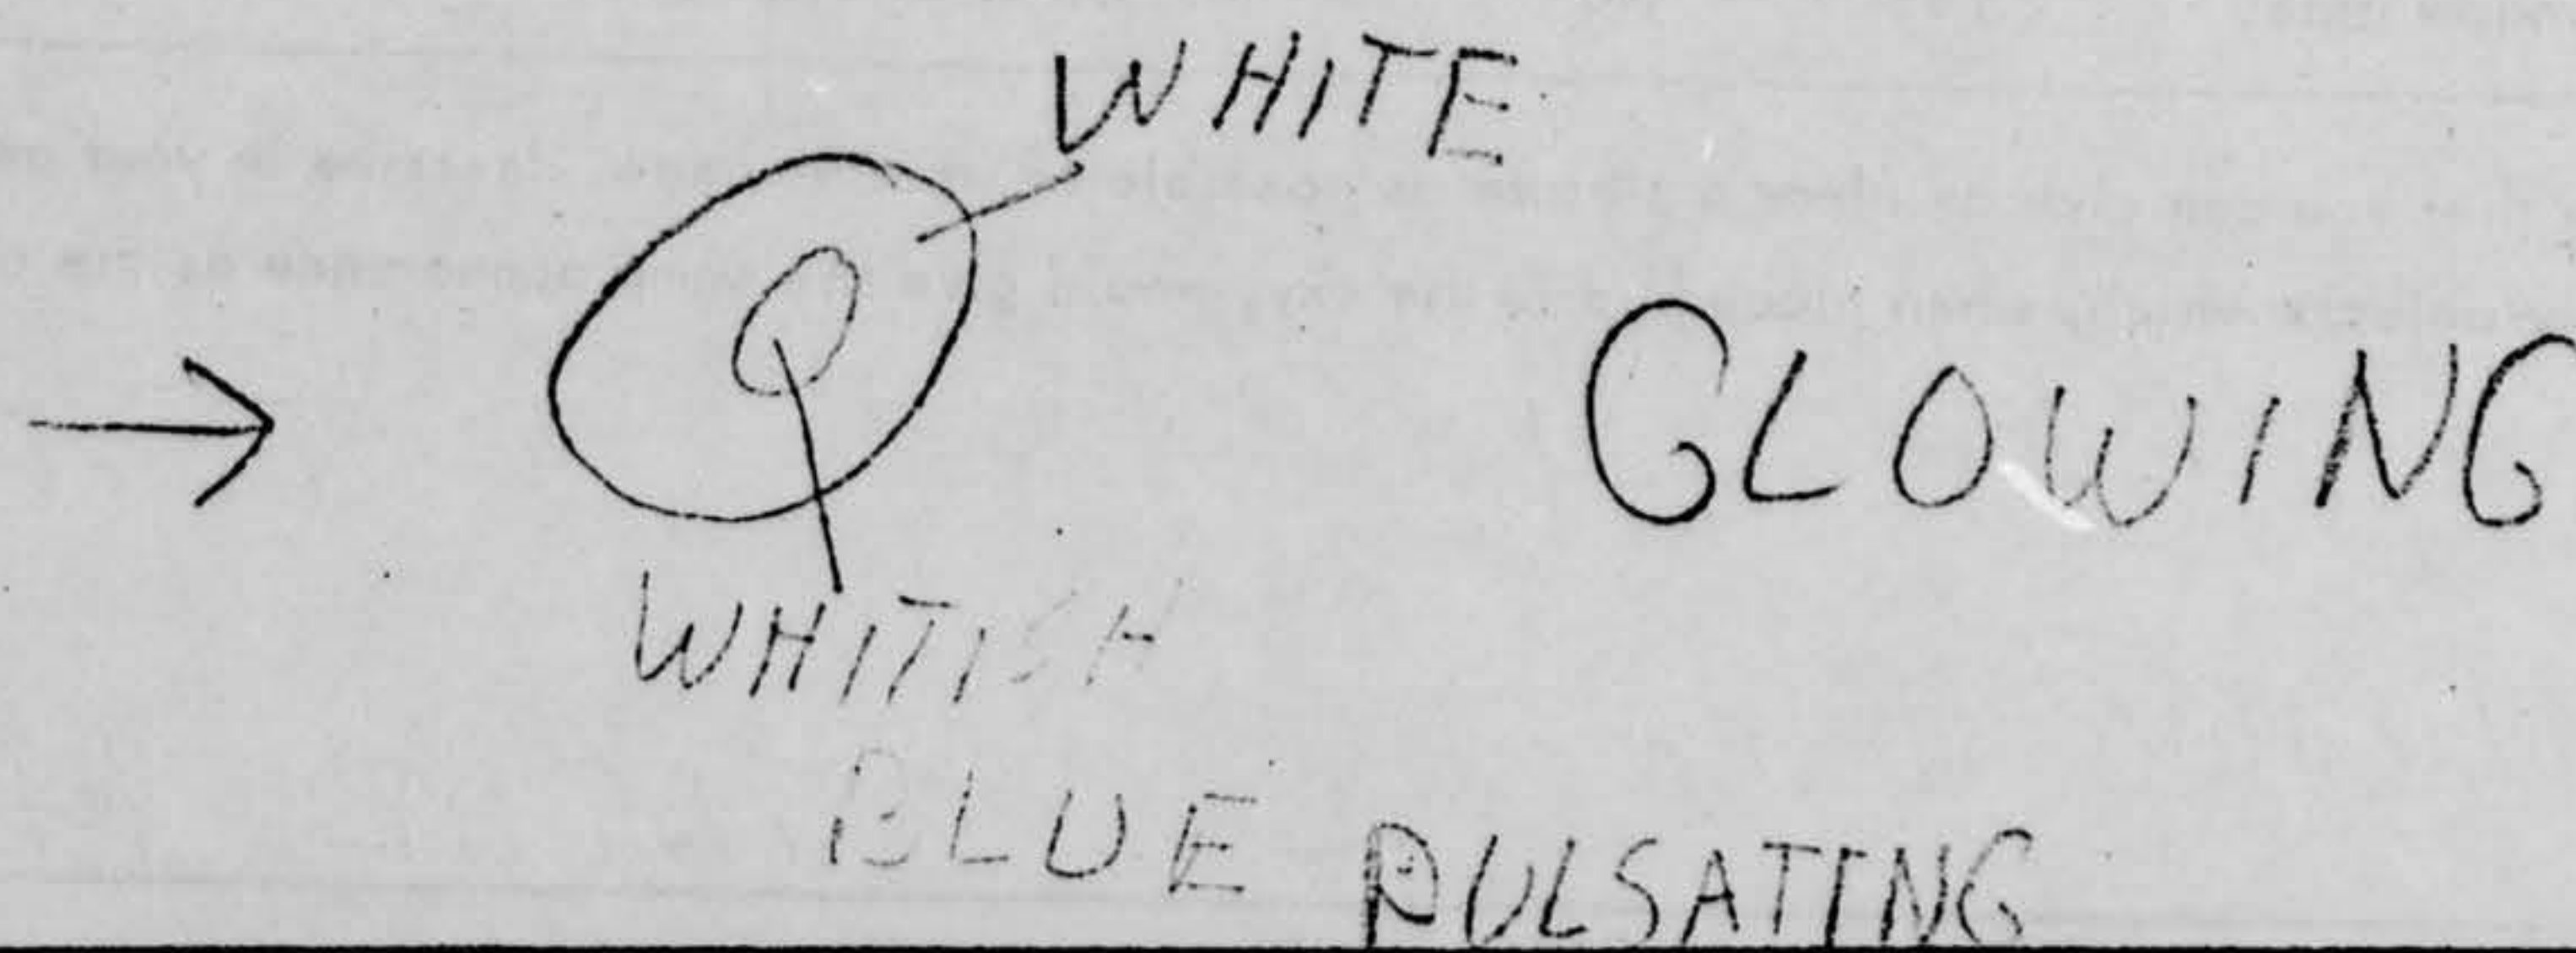 WHITE
GLOWING
WHITISH
BLUE PULSATING